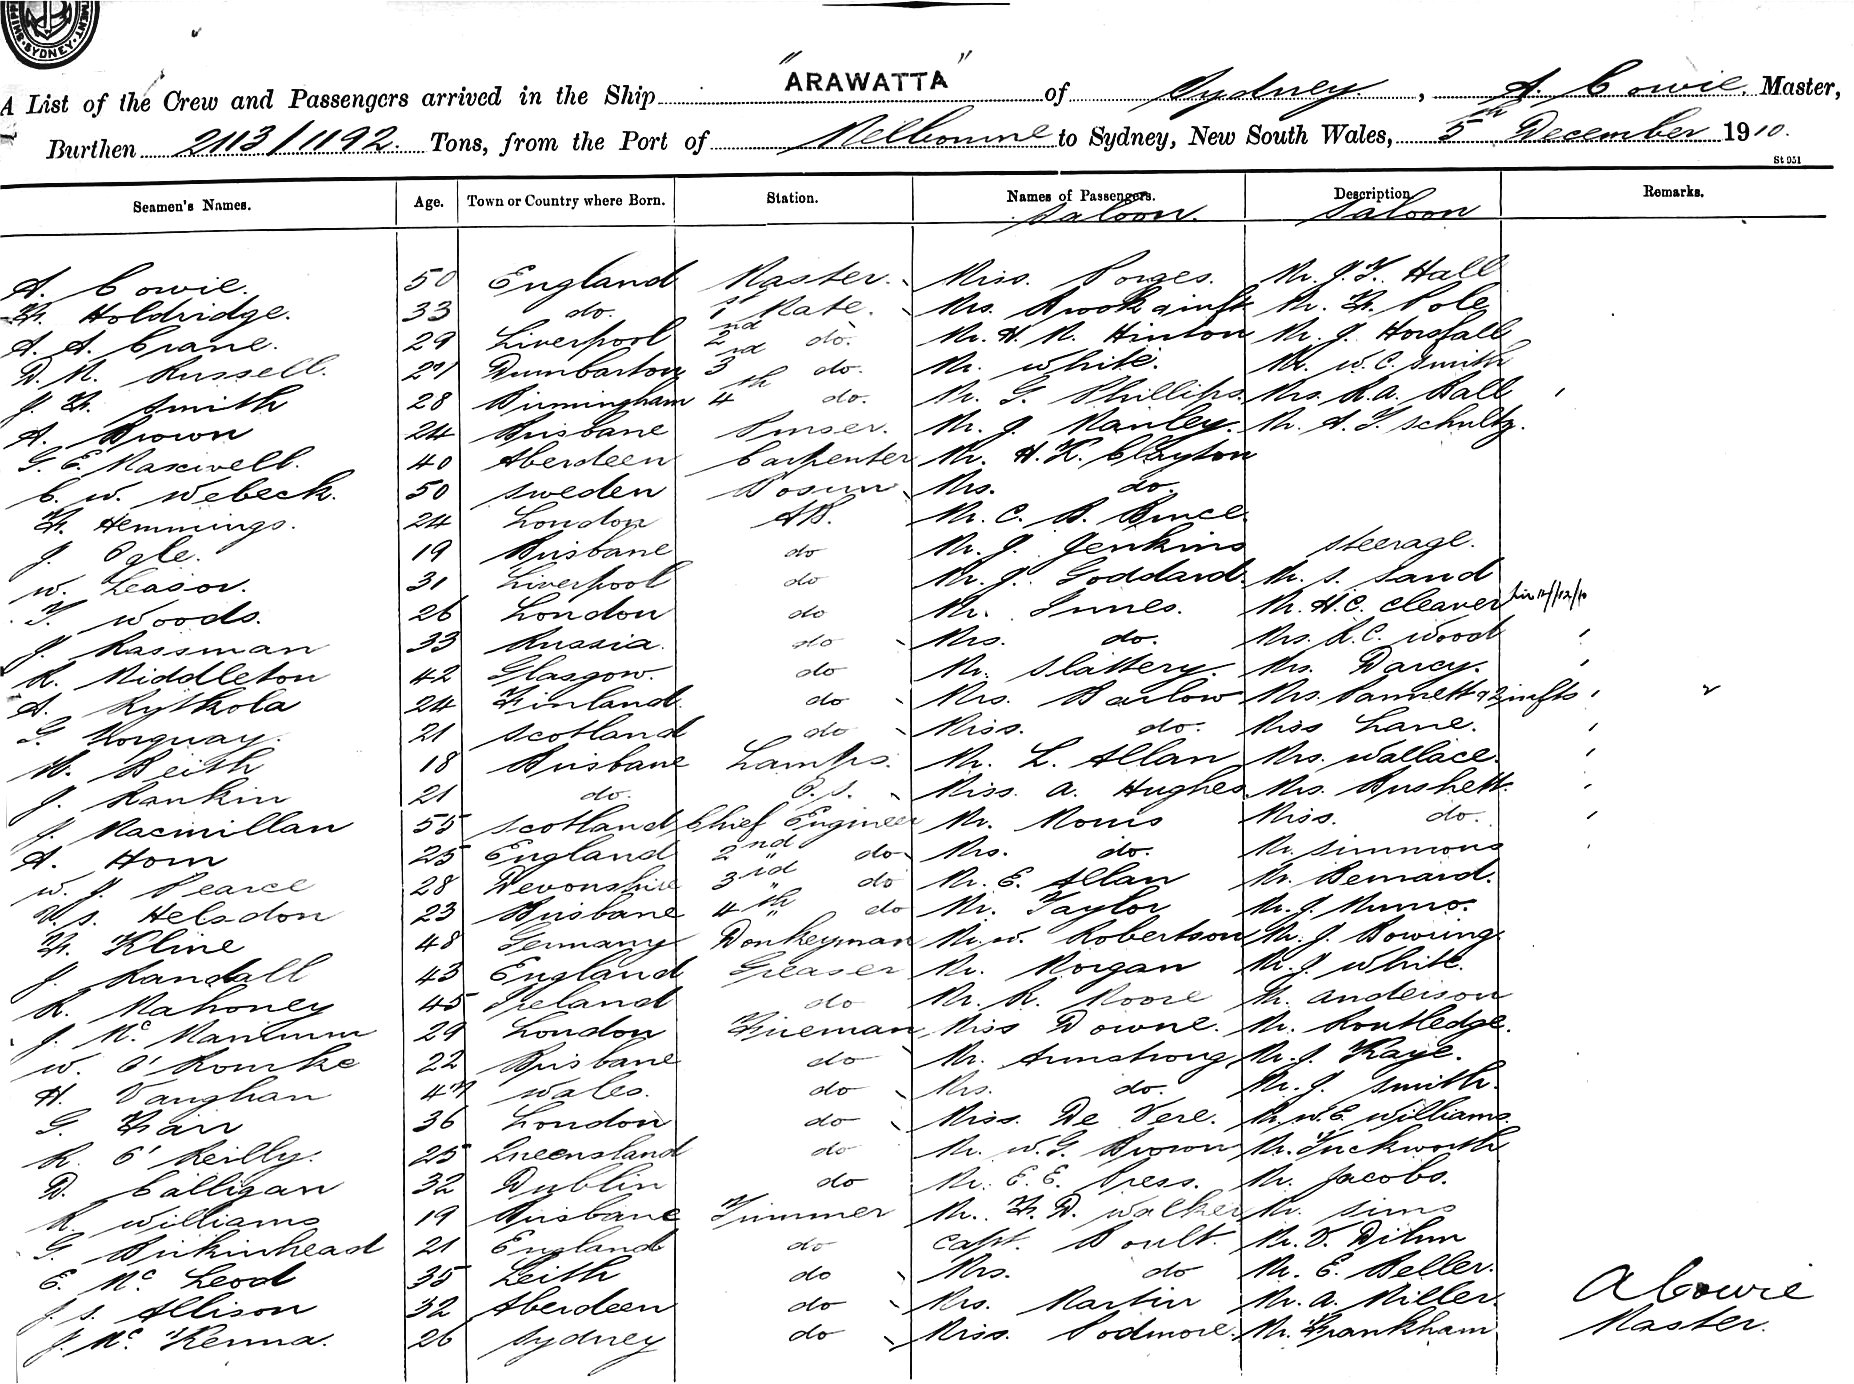 MENT SYDNEY
"ARAWATTA"
A List of the Crew and Passengers arrived in the Ship "ARAWATTA" of Sydney, A. Cowie. Master,
Burthen 2113/1192. Tons, from the Port of Melbourne to Sydney, New South Wales, 5th December 1910.
St 051
Seamen's Names. Age. Town or Country where Born. Station. Names of Passengers. Description Remarks.
Saloon. Saloon
A. Cowie. 50 England Master. Miss. Porges. Mr. J. F. Hall
H. Holdridge. 33 do. 1st Mate. Mrs. Brook & inft Mr. H. Pole
A. A. Crane. 29 Liverpool 2nd do. Mr. H. N. Hinton Mr. J. Horsfall
D. M. Russell. 29 Dumbarton 3rd do. Mr. White. Mr. W. C. Smith
J. H. Smith 28 Birmingham 4th do. Mr. G. Phillips. Mrs. R. A. Ball
A. Brown 24 Brisbane Purser. Mr. J. Manley. Mr. A. F. Schultz.
G. E. Maxwell. 40 Aberdeen Carpenter Mr. H. K. Clayton
C. W. Webeck. 50 Sweden Bosun Mrs. do.
H. Hemmings. 24 London AB. Mr. C. B. Bruce
J. Ogle. 19 Brisbane do Mr. J. Jenkins Steerage.
W. Leason. 31 Liverpool do Mr. J. Goddard Mr. S. Sand
T. Woods. 26 London do Mr. Innes. Mr. H. C. Cleaver
J. Rassman 33 Russia. do Mrs. do. Mrs. R. C. Wood
R. Middleton 42 Glasgow. do Mr. Slattery. Mrs. Darcy.
A. Kytkola 24 Finland. do Mrs. Barlow Mrs. Pannett & 2 infts
G. Torquay. 21 Scotland do Miss. do. Miss Lane.
M. Beith 18 Brisbane Lamps. Mr. L. Allan Mrs. Wallace.
J. Rankin 21 do. O.S. Miss. A. Hughes Mrs. Bushett
J. Macmillan 55 Scotland Chief Engineer Mr. Morris Miss. do.
A. Horn 25 England 2nd " do Mrs. do. Mr. Simmons
W. J. Pearce 28 Devonshire 3rd " do Mr. E. Allan Mr. Bernard.
S. Helsdon 23 Brisbane 4th " do Mr. Taylor Mr. J. Munro.
H. Kline 48 Germany Donkeyman Mr. W. Robertson Mr. J. Bowring
J. Randall 43 England Greaser Mr. Morgan Mr. J. White.
R. Mahoney 45 Ireland do Mr. R. Moore Mr. Anderson
J. Mc. Manimm 29 London Fireman Miss Downe. Mr. Routledge.
W. O'Rourke 22 Brisbane do Mr. Armstrong Mr. J. Kaye.
H. Vaughan 47 Wales. do Mrs. do. Mr. J. Smith.
G. Fair 36 London do Miss. De Vere. Mr. W. E. Williams.
R. O'Reilly. 25 Queensland do Mr. W. G. Brown Mr. Tuckworth
D. Calligan 32 Dublin do Mr. E. E. Press. Mr. Jacobs.
R. Williams 19 Brisbane Trimmer Mr. H. D. Walker Mr. Sims
G. Birkinhead 21 England do Capt. Boult. Mr. V. Dihm
E. Mc. Leod 35 Leith do Mrs. do Mr. E. Beller.
J. S. Allison 32 Aberdeen do Mrs. Martin Mr. A. Miller. A Cowie
J. Mc. Kenna. 26 Sydney do Miss. Podmore. Mr. Frankham Master.